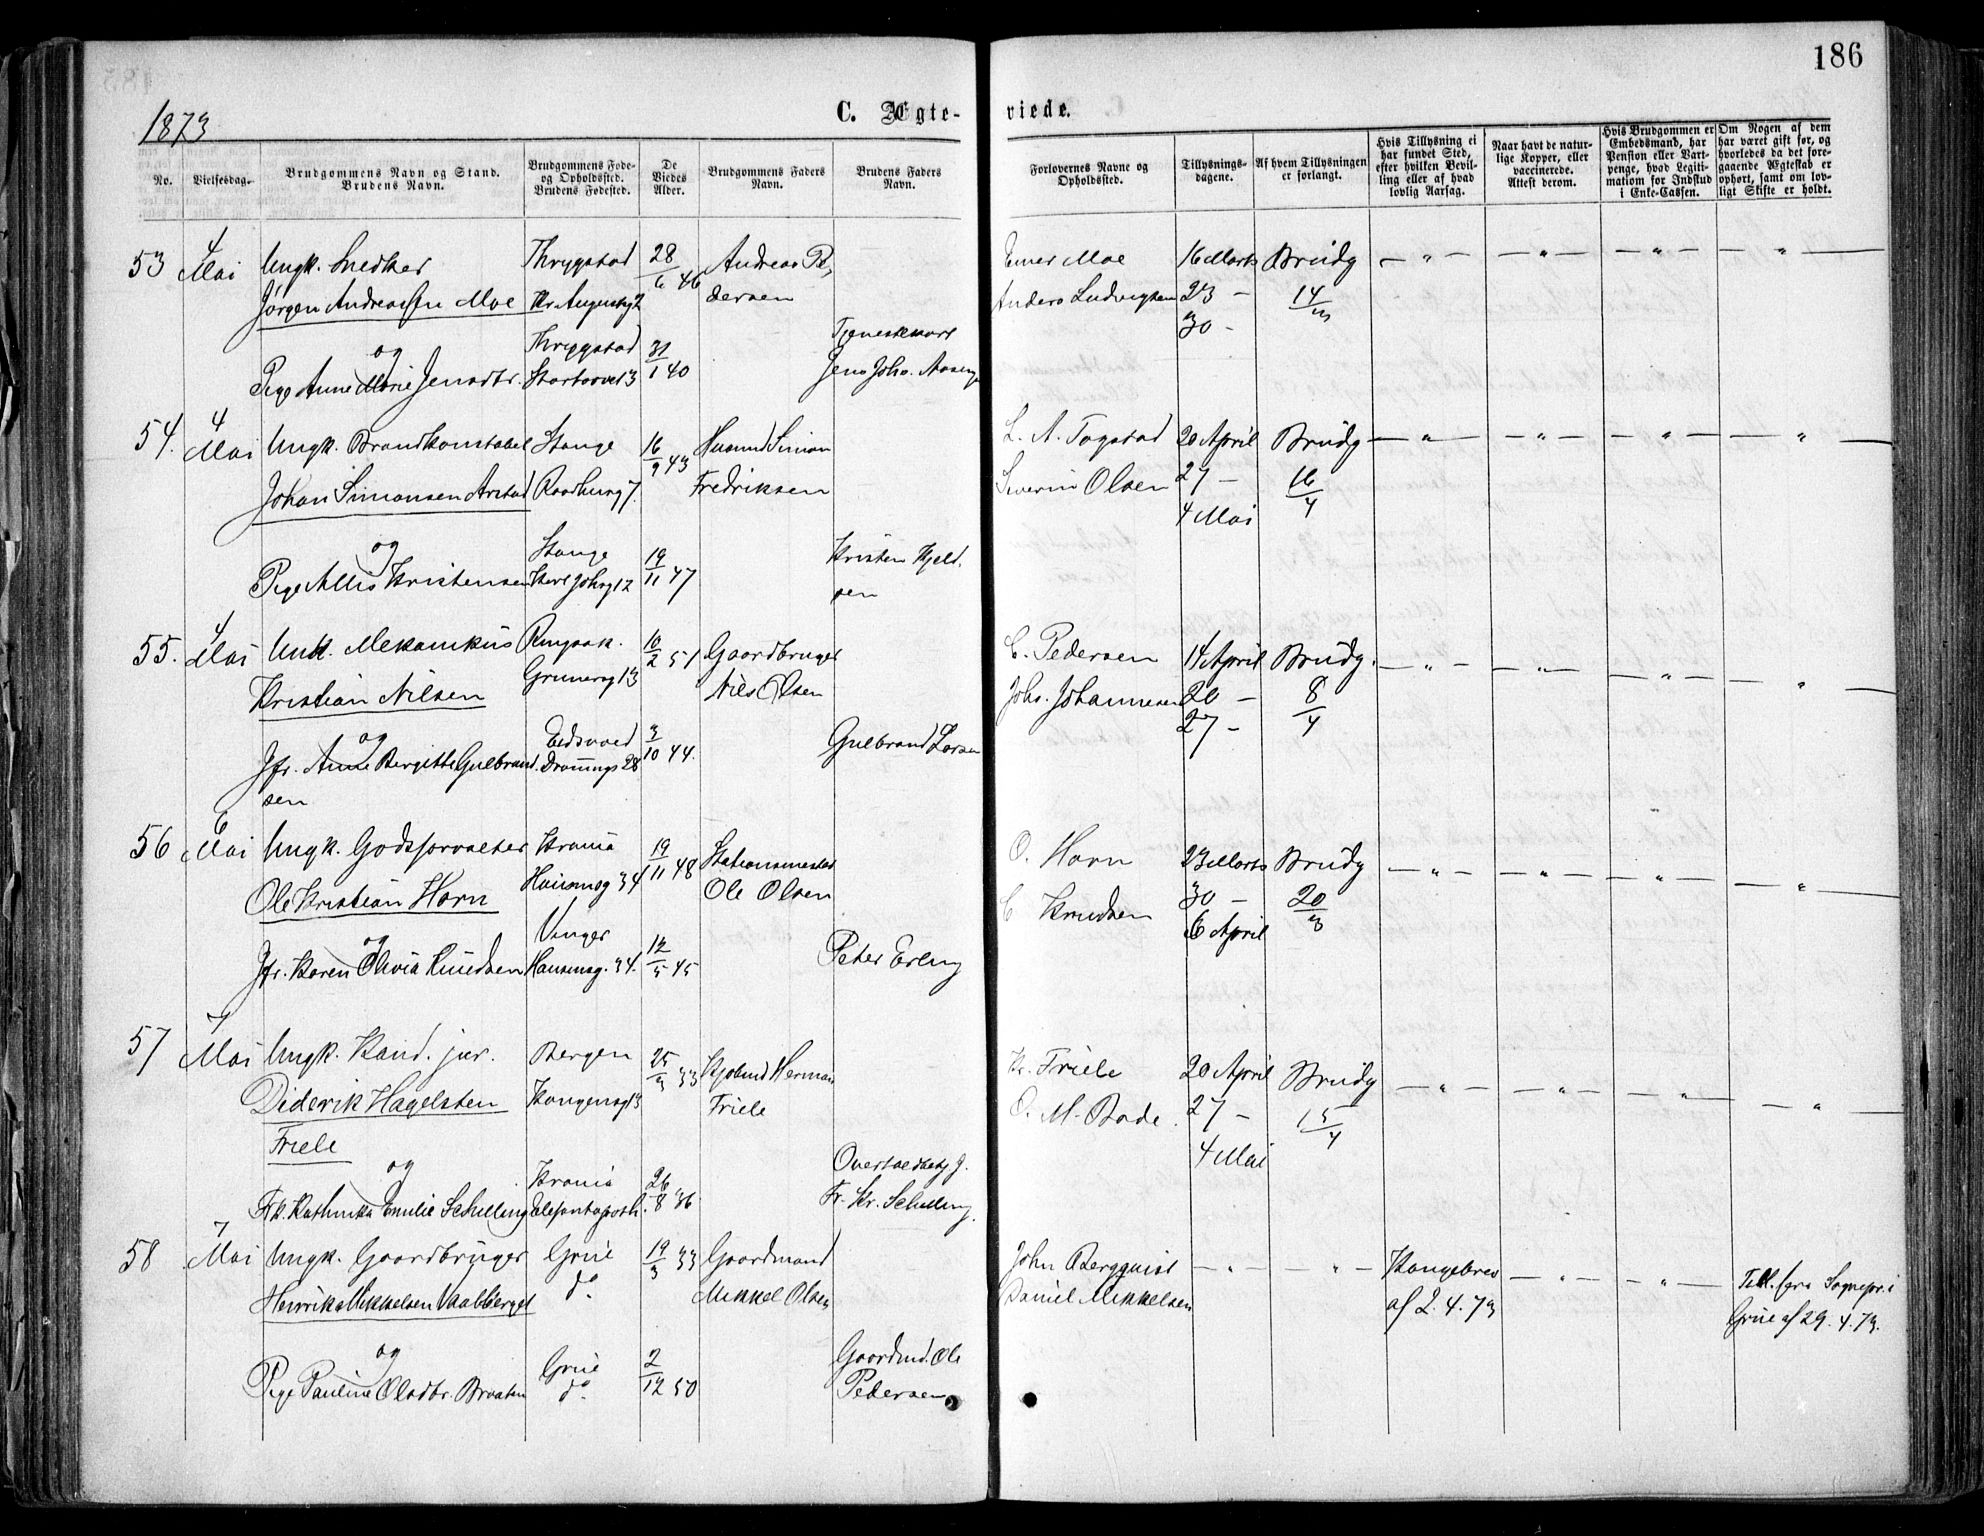 186
1873
C. Ægte-
viede.
No.
Vielsesdag.
Brudgommens Navn og Stand.
Brudens Navn.
Brudgommens Føde-
og Opholdssted.
Brudens Fødested.
De
Viedes
Alder.
Brudgommens Faders
Navn.
Brudens Faders
Navn.
Forlovernes Navne og
Opholdssted.
Tillysnings-
dagene.
Af hvem Tillysningen
er forlangt.
Hvis Tillysning ei
har fundet Sted,
efter hvilken Bevil-
ling eller af hvad
lovlig Aarsag.
Naar havt de natur-
lige Kopper, eller
vaccinerede.
Attest derom.
Hvis Brudgommen er
Embedsmand, har
Pension eller Vart-
penge, hvad Legiti-
mation for Indskud
i Enke-Cassen.
Om Nogen af dem
har været gift før, og
hvorledes da det fore-
gaaende Ægteskab er
ophørt, samt om lov-
ligt Skifte er holdt.
53 4 Mai Ungk. Snedker Thrygstad 28/6 46 Andreas Pe-
Jørgen Andreassen Moe Kr. Augustg 2 dersen
Einer Moe 16 Marts Brudg — " — — " — — " — — " —
Anders Ludvigsen 23 — 14/3
30 —
og Thrygstad 31/1 40 Tjenestekarl
Pige Anne Marie Jensdtr. Stortorvet 3 Jens Joh.
54. 4 Mai Ungk. Brandkonstabel Stange 16/9 43 Husmd Simon
Johan Simonsen Arstad Raadhusg 7. Fredriksen
L. A. Togstad 20 April Brudg — " — — " — — " — — " —
Severin Olsen 27 — 16/4
4 Mai
og Stange 19/11 47 Kristen Kjeld-
Pige Allis Kristensen Karl Johsg 12 sen
55. 4 Mai Unk. Mekanikus Ringsak. 10/2 51 Gaardbruger
Kristian Nilsen Grunersg 13 Nils Olsen
C. Pedersen 14 April Brudg. — " — — " — — " — — " —
Johs. Johannesen 20 — 8/4
27 —
og Eidsvold 3/10 44. Gulbrand Larsen
Jfr. Anne Bergitte Gulbrand- Dronnings 28
sen
56 6 Mai Ungk. Godsforvalter Krania 19/11 48 Stationsmester
Ole Kristian Horn Hausmsg 34 Ole Olsen
O. Horn 23 Marts Brudg — " — — " — — " — — " —
C Knudsen 30 — 20/3
6 April
og Vinger 12/5 45 Peter Erling
Jfr. Karen Olivia Knudsen Hausmsg. 34.
57 7 Mai Ungk. Kand. jur. Bergen 25/3 33 Kjøbmd Herman
Diderik Hagelsten Kongensg 13 Friele
Friele
Kr. Friele 20 April Brudg — " — — " — — " — — " —
O. M. Bode. 27 — 15/4
4 Mai
og Krania 26/8 36 J.
Frk. Kathinka Emilie Schilling Elefantapoth. Fr. Kr. Schilling.
58 7 Mai Ungk. Gaardbruger Grue 19/3 33 Gaardmand
Henrik Mikkelsen Vaalberget do Mikkel Olsen
John Bergqvist — " — — " — Kongebrev — " — — " — Till. fra Sognepr. i
Daniel Mikkelsen af 2. 4. 73 Grue af 29. 4. 73.
og Grue 2/12 50 Gaardmd. Ole
Pige Pauline Olsdtr. Braaten do Pedersen